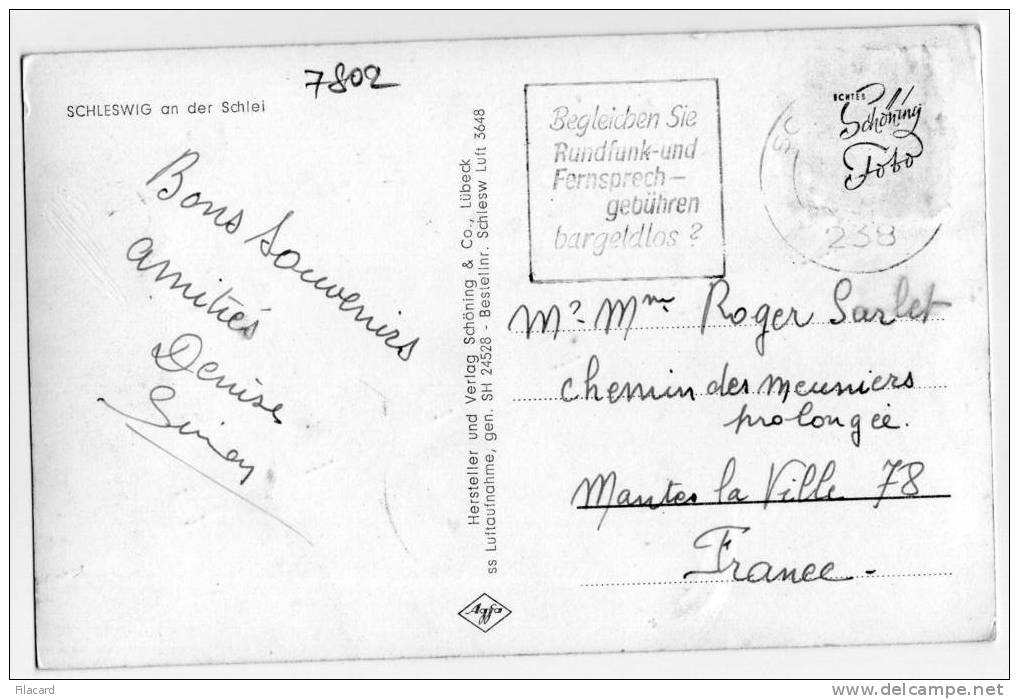 SCHLESWIG an der Schlei
7802
Bons Souvenirs
amitiés
Denise
Hersteller und Verlag Schöning & Co., Lübeck
ss Luftaufnahme, gen. SH 24528 - Bestellnr. Schlesw Luft 3648
Agfa
Begleichen Sie
Rundfunk-und
Fernsprech-
gebühren
bargeldlos?
238
ECHTES
Schöning
Foto
Mr. Mme Roger Sarlet
chemin des meuniers
prolongée.
Mantes la Ville 78
France -
Filacard
delcampe.net